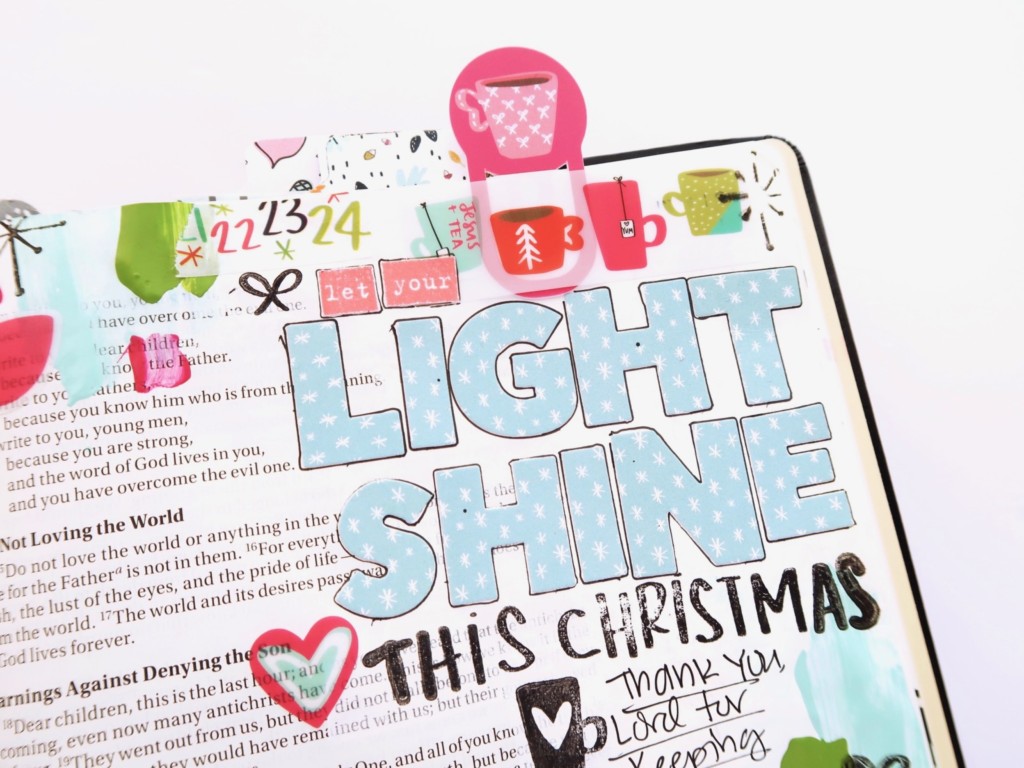 21 22 23 24
Jesus
+ TEA
YUM
let your
LIGHT
SHINE
THIS CHRISTMAS
THANK YOU
Lord for
keeping
to you,
have overcome the
dear children,
know the Father.
to you, fathers,
because you know him who is from the beginning
write to you, young men,
because you are strong,
and the word of God lives in you,
and you have overcome the evil one.
Not Loving the World
Do not love the world or anything in the
for the Father is not in them. 16For
the lust of the eyes, and the pride of life
the world. 17The world and its desires pass
God lives forever.
Warnings Against Denying the Son
18Dear children, this is the last hour; and
coming, even now many antichrists have come.
19They went out from us, but they did not
would have remained with us; but their
One, and all of you